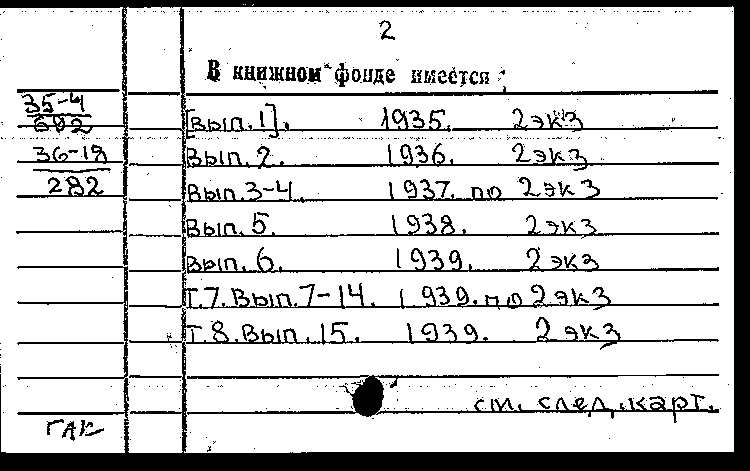 2
В книжном фонде имеется:
35-4
692
[Вып.1]. 1935. 2экз
36-18
Вып.2. 1936. 2экз
282
Вып.3-4. 1937. по 2экз
Вып.5. 1938. 2экз
Вып.6. 1939. 2экз
Т.7.Вып.7-14. 1939. по 2экз
Т.8.Вып.15. 1939. 2экз
см. след. карт.
ГАК